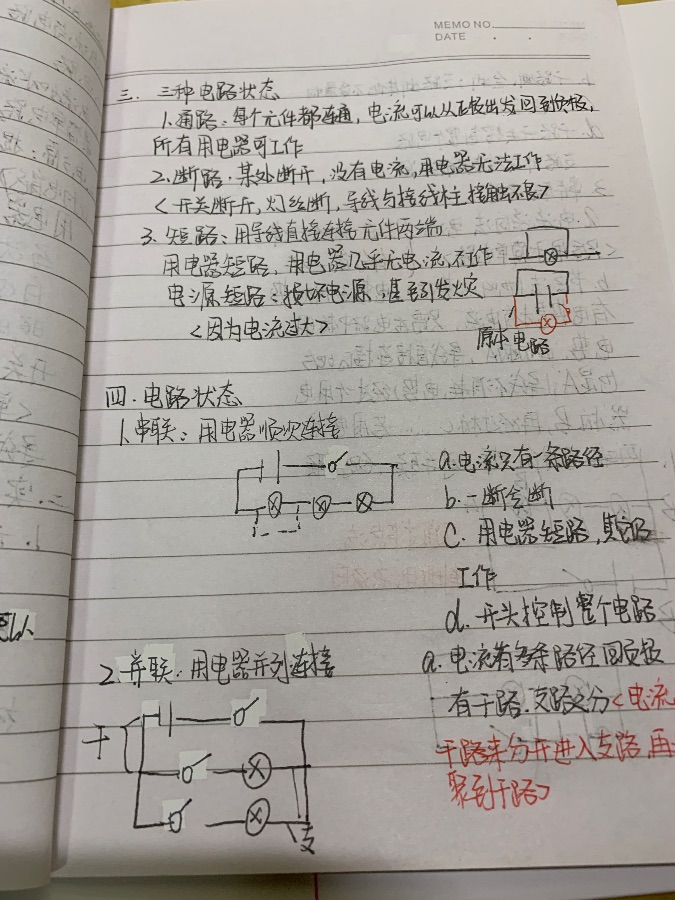 MEMO NO.
DATE . .
三. 三种电路状态
1.通路:每个元件都连通,电流可以从正极出发回到负极,
所有用电器可工作
2.断路.某处断开,没有电流,用电器无法工作
<开关断开,灯丝断,导线与接线柱接触不良>
3. 短路:用导线直接连接元件两端
用电器短路,用电器几乎无电流,不工作
电源短路:损坏电源,甚至引发火灾
<因为电流过大>
原本电路
四.电路状态
1.串联:用电器顺次连接
a.电流只有一条路径
b.一断全断
C.用电器短路,其它仍
工作
d.开头控制整个电路
2.并联:用电器并列连接
a.电流有多条路径回负极
有干路.支路之分<电流
干路来分开进入支路,再
聚到干路>
干
支